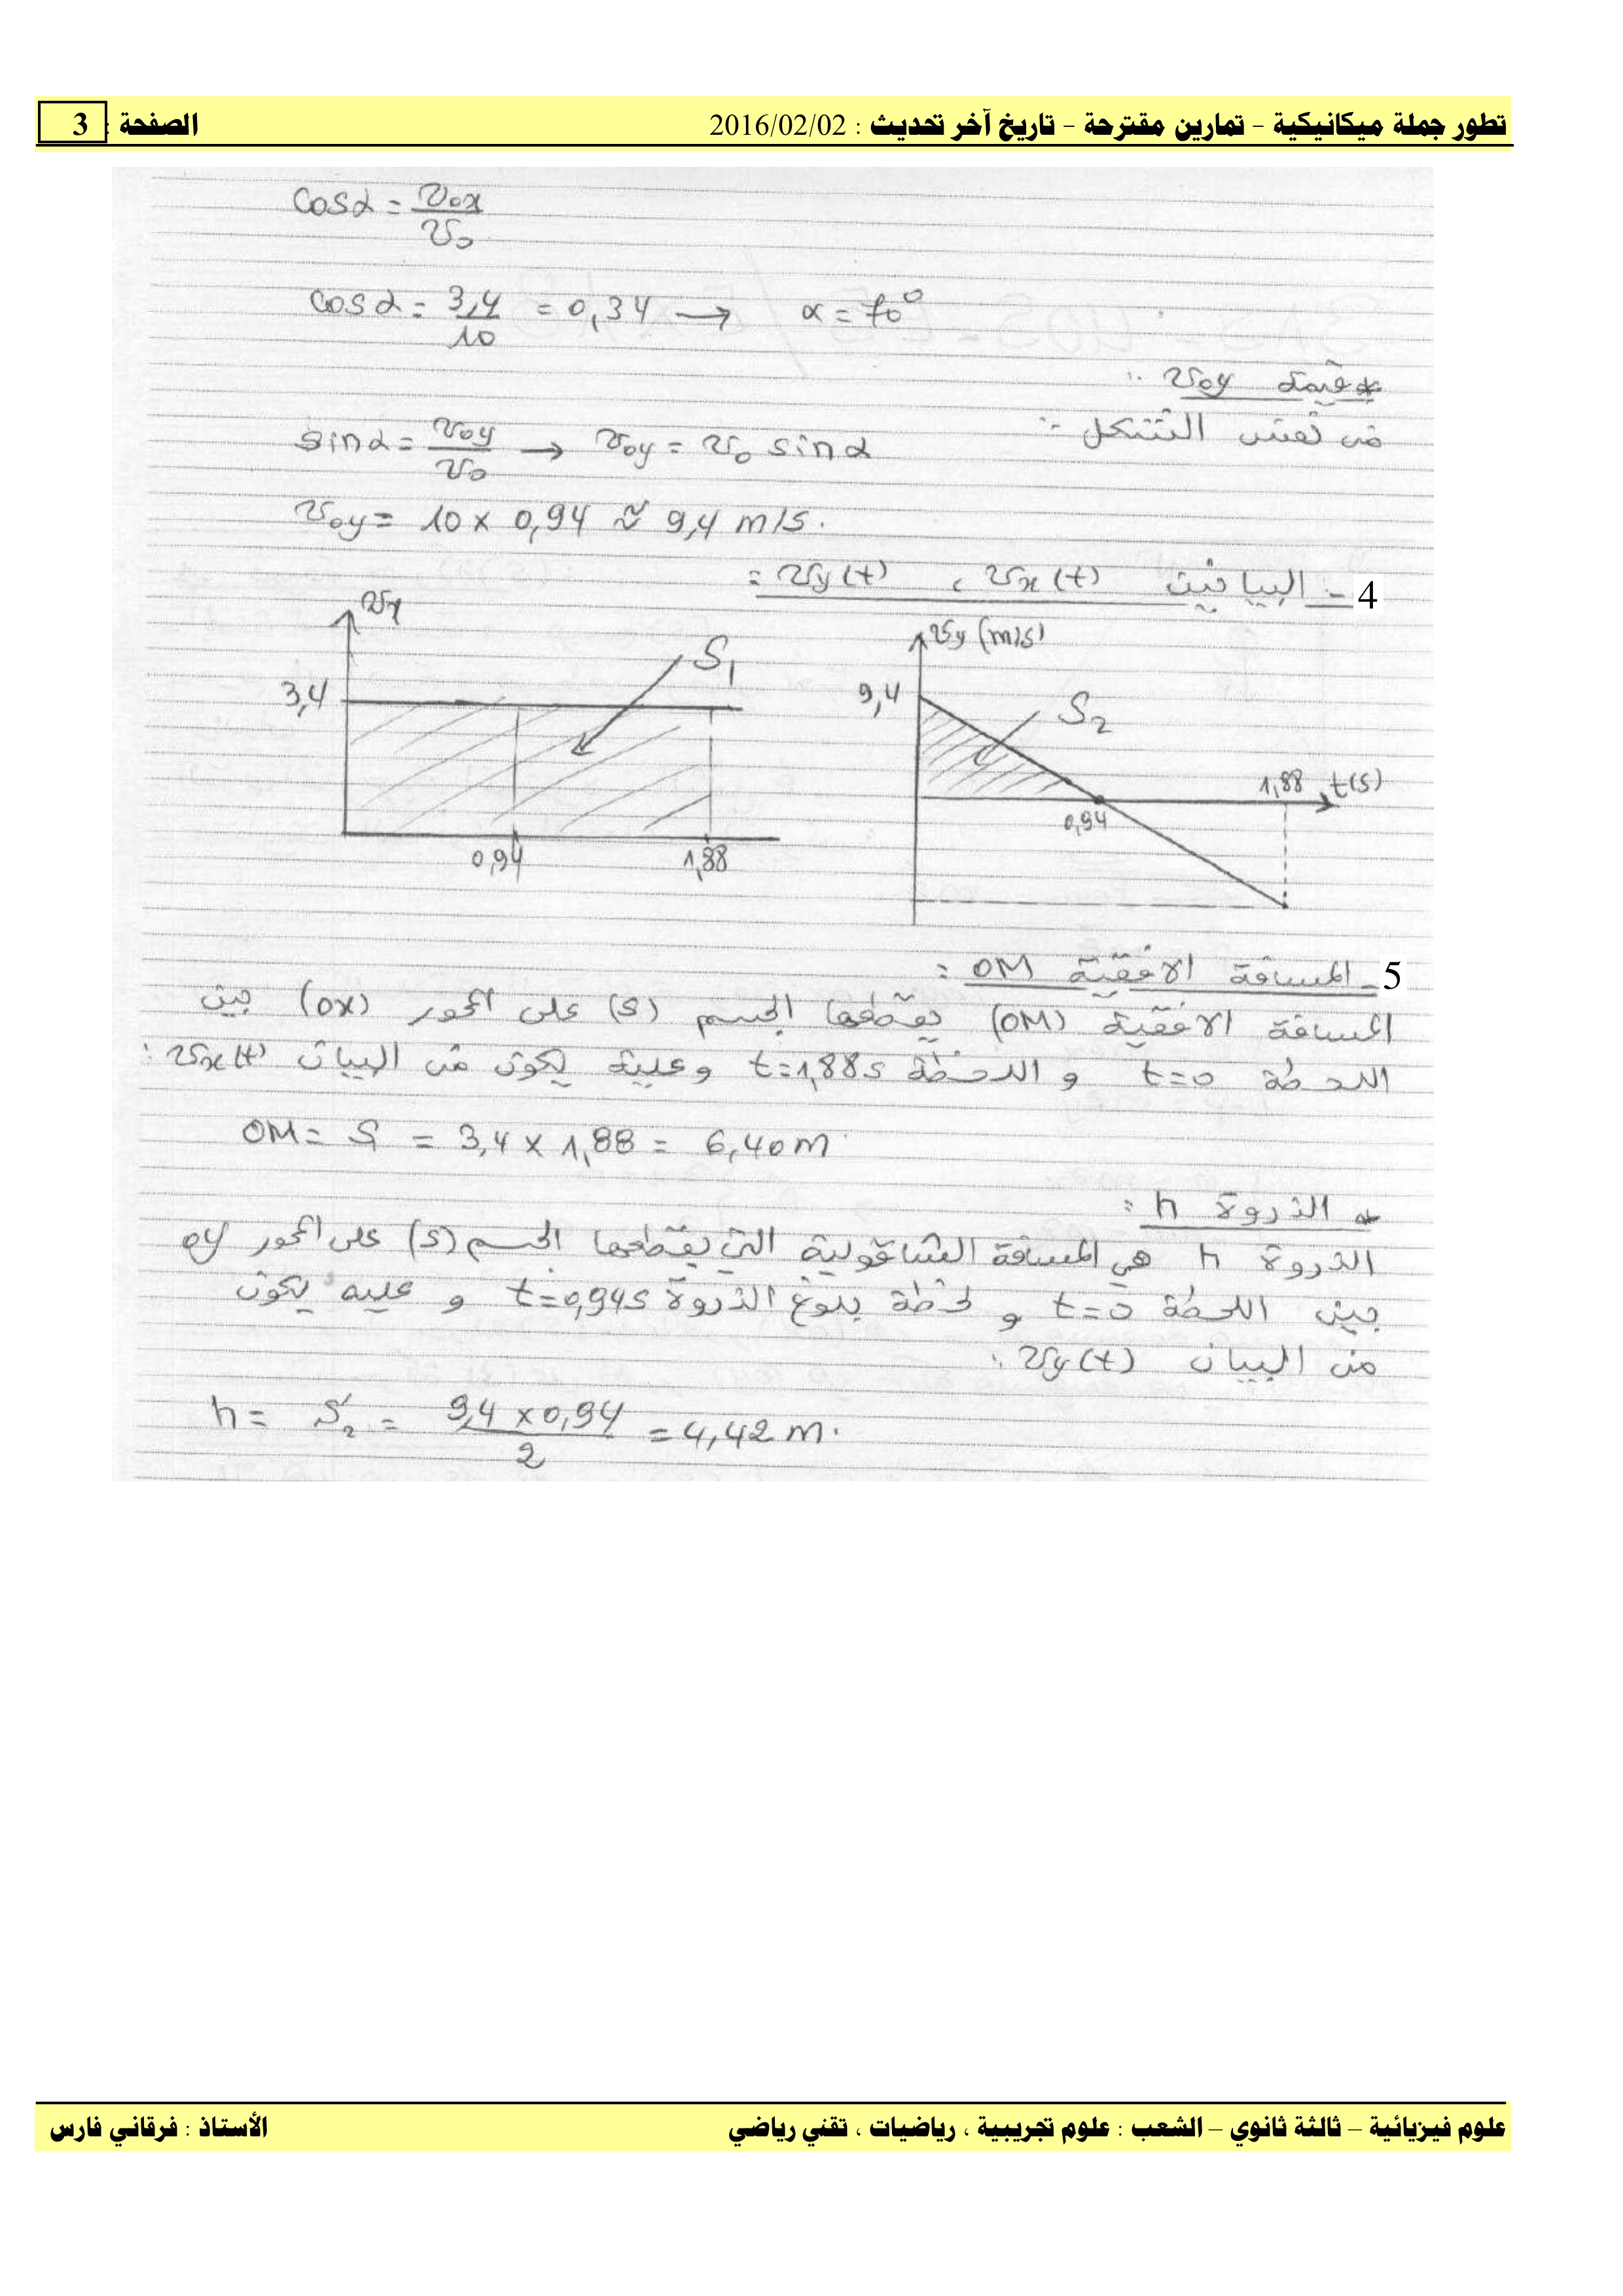 تطور جملة ميكانيكية - تمارين مقترحة - تاريخ آخر تحديث : 2016/02/02 الصفحة : 3
cosα = v₀x / v₀
cosα = 3,4 / 10 = 0,34 → α = 70°
* قيمة v₀y :
من نفس الشكل :
sinα = v₀y / v₀ → v₀y = v₀ sinα
v₀y = 10 × 0,94 ≈ 9,4 m/s.
4 - البيانين vx(t) ، vy(t) :
vy (m/s)
9,4
S₂
1,88 t(s)
0,94
3,4
S₁
0,94 1,88
5 - المسافة الافقية OM :
المسافة الافقية (OM) يقطعها الجسم (S) على المحور (ox) بين
اللحظة t=0 و اللحظة t=1,88s وعليه يكون من البيان vx(t) :
OM = S₁ = 3,4 × 1,88 = 6,40 m
* الذروة h :
الذروة h هي المسافة الشاقولية التي يقطعها الجسم (S) على المحور oy
بين اللحظة t=0 و لحظة بلوغ الذروة t=0,94s و عليه يكون
من البيان vy(t) :
h = S₂ = 9,4 × 0,94 / 2 = 4,42 m.
علوم فيزيائية – ثالثة ثانوي – الشعب : علوم تجريبية ، رياضيات ، تقني رياضي الأستاذ : فرقاني فارس